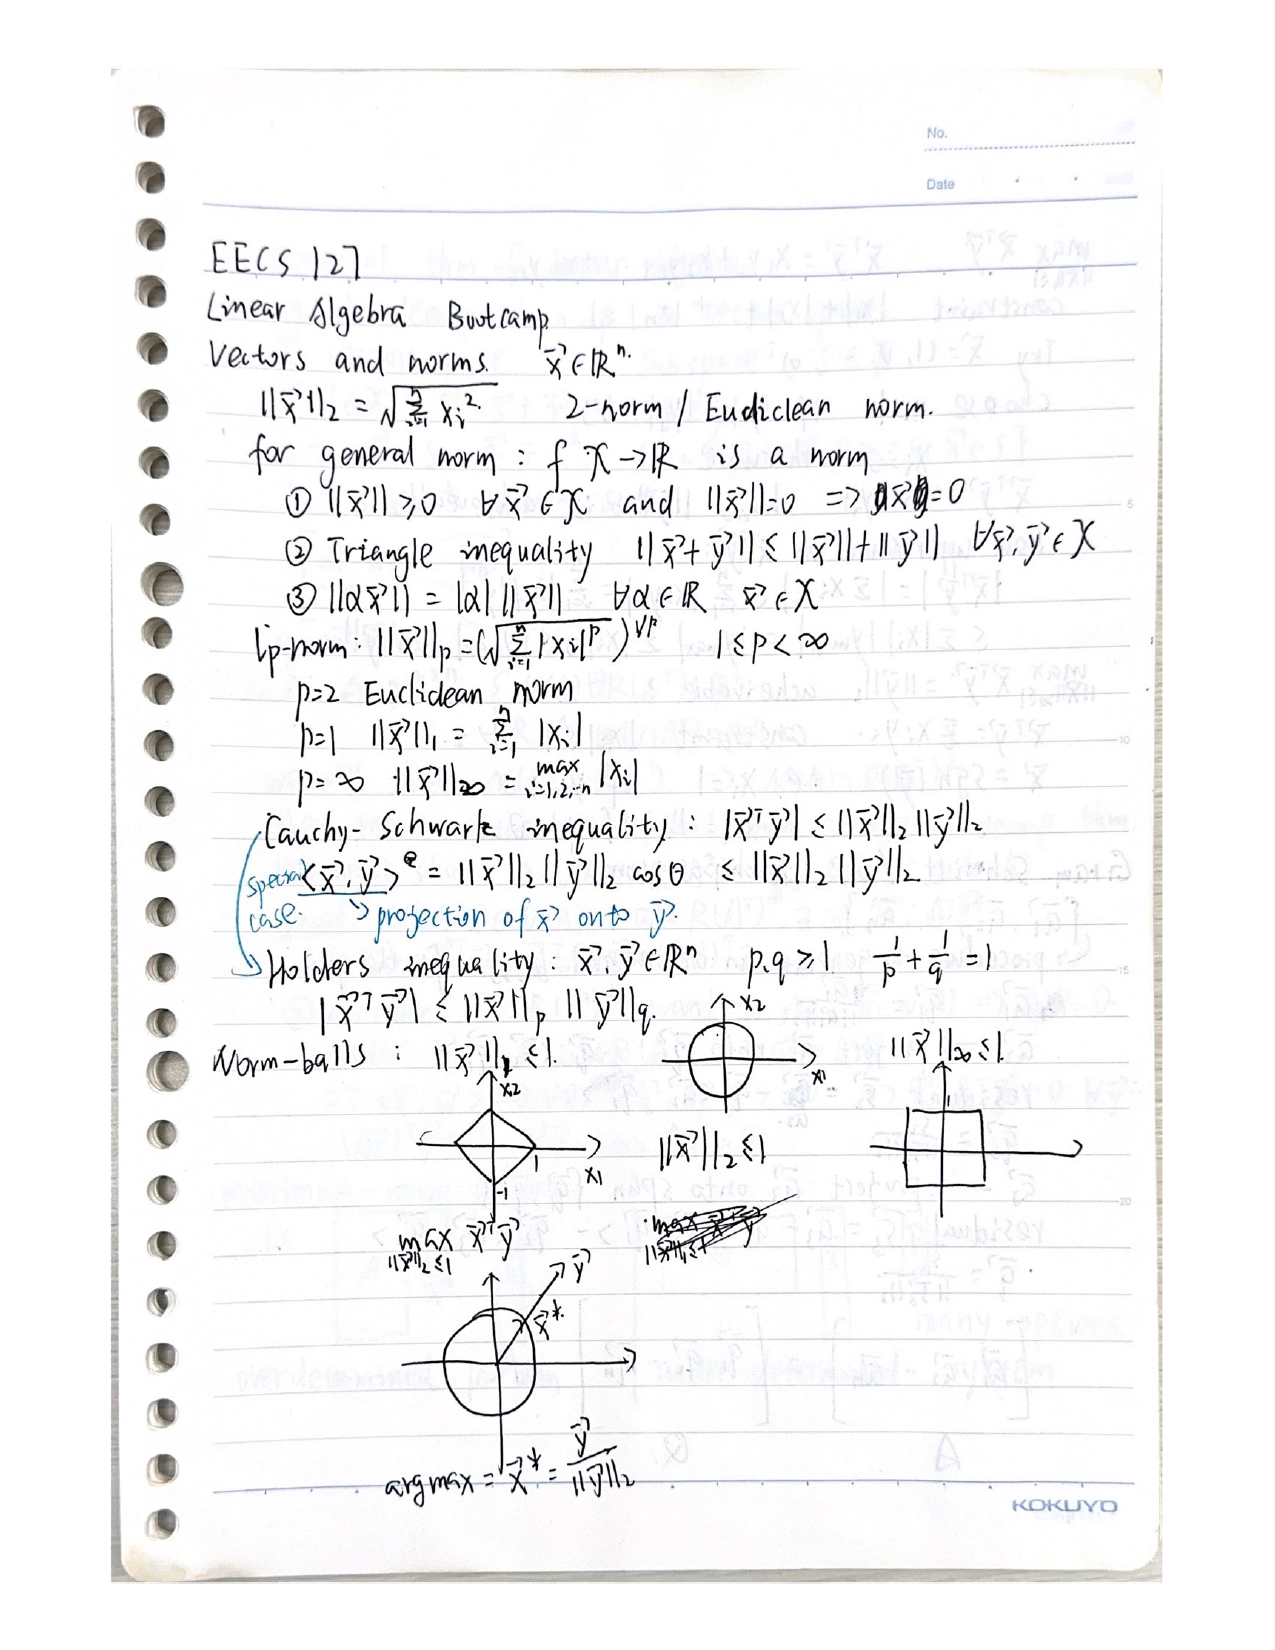 No.
Date
EECS 127
Linear Algebra Bootcamp
Vectors and norms. x⃗ ∈ ℝⁿ.
||x⃗||₂ = √(∑ᵢ₌₁ⁿ xᵢ²) 2-norm / Eudiclean norm.
for general norm : f X → ℝ is a norm
① ||x⃗|| ≥ 0 ∀ x⃗ ∈ X and ||x⃗|| = 0 => x⃗ = 0
② Triangle inequality ||x⃗ + y⃗|| ≤ ||x⃗|| + ||y⃗|| ∀x⃗, y⃗ ∈ X
③ ||αx⃗|| = |α| ||x⃗|| ∀α ∈ ℝ x⃗ ∈ X
lp-norm : ||x⃗||p = (√(∑ᵢ₌₁ⁿ |xi|ᵖ))^(1/p) 1 ≤ p < ∞
p=2 Euclidean norm
p=1 ||x⃗||₁ = ∑ᵢ₌₁ⁿ |xi|
p=∞ ||x⃗||∞ = max i=1,2,..n |xi|
Cauchy-Schwartz inequality : |x⃗ᵀy⃗| ≤ ||x⃗||₂ ||y⃗||₂
special <x⃗, y⃗> = ||x⃗||₂ ||y⃗||₂ cosθ ≤ ||x⃗||₂ ||y⃗||₂
case. projection of x⃗ onto y⃗.
Holders inequality : x⃗, y⃗ ∈ ℝⁿ p,q ≥ 1 1/p + 1/q = 1
|x⃗ᵀy⃗| ≤ ||x⃗||p ||y⃗||q.
Norm-balls : ||x⃗||₁ ≤ 1. x2 x1 ||x⃗||∞ ≤ 1.
x2 1
1 x1 ||x⃗||₂ ≤ 1
-1
max ||x⃗||₂ ≤ 1 x⃗ᵀy⃗
y⃗
x⃗*.
argmax = x⃗* = y⃗ / ||y⃗||₂
5
10
15
20
KOKUYO